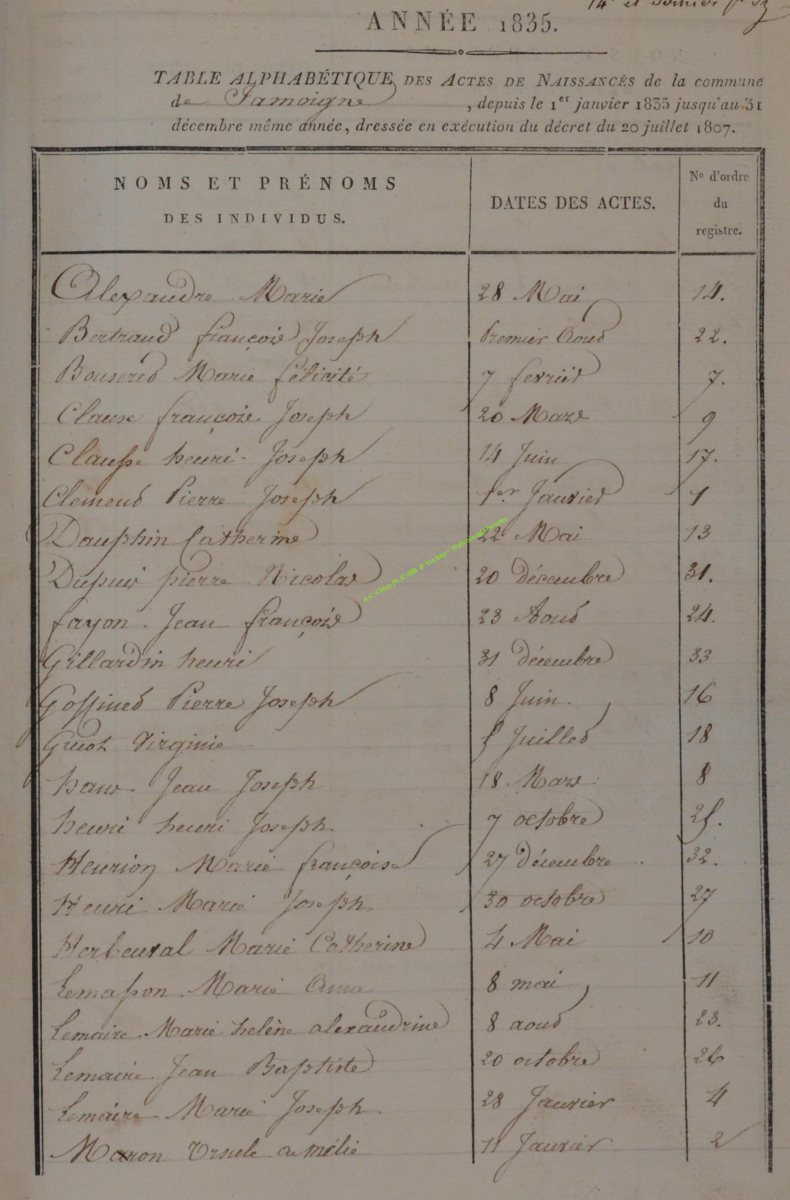 14e et dernier
ANNÉE 1835.
TABLE ALPHABÉTIQUE DES ACTES DE NAISSANCES de la commune
de Jamoigne, depuis le 1er janvier 1835 jusqu'au 31
décembre même année, dressée en exécution du décret du 20 juillet 1807.
NOMS ET PRÉNOMS DES INDIVIDUS. DATES DES ACTES. No d'ordre du registre.
Alexandre Marie 28 Mai 14.
Bertrand françois Joseph Premier Aout 22.
Marie félicité 7 fevrier 7.
Clause françois Joseph 20 Mars 9
Clausse henri Joseph 14 Juin 17.
Clement Pierre Joseph 1er Janvier 1
Dauphin Catherine 22 Mai 13
Dupuis pierre Nicolas 20 décembre 31.
fayon Jean françois 23 Aout 24.
Gillardin henri 31 décembre 33
Goffinet Pierre Joseph 8 Juin 16
Guiot Virginie 5 Juillet 18
hans Jean Joseph 18 Mars 8
henri henri Joseph 7 octobre 25.
Henrion Marie françoise 27 décembre 32.
Henri Marie Joseph 30 octobre 27
Herbeuval Marie Catherine 4 Mai 10
Lemasson Marie Anne 8 mai 11
Lemaire Marie helène alexandrine 8 aout 23.
Lemaire Jean Baptiste 20 octobre 26
Lemaire Marie Joseph 28 Janvier 4
Maron Ursule amélie 11 Janvier 2